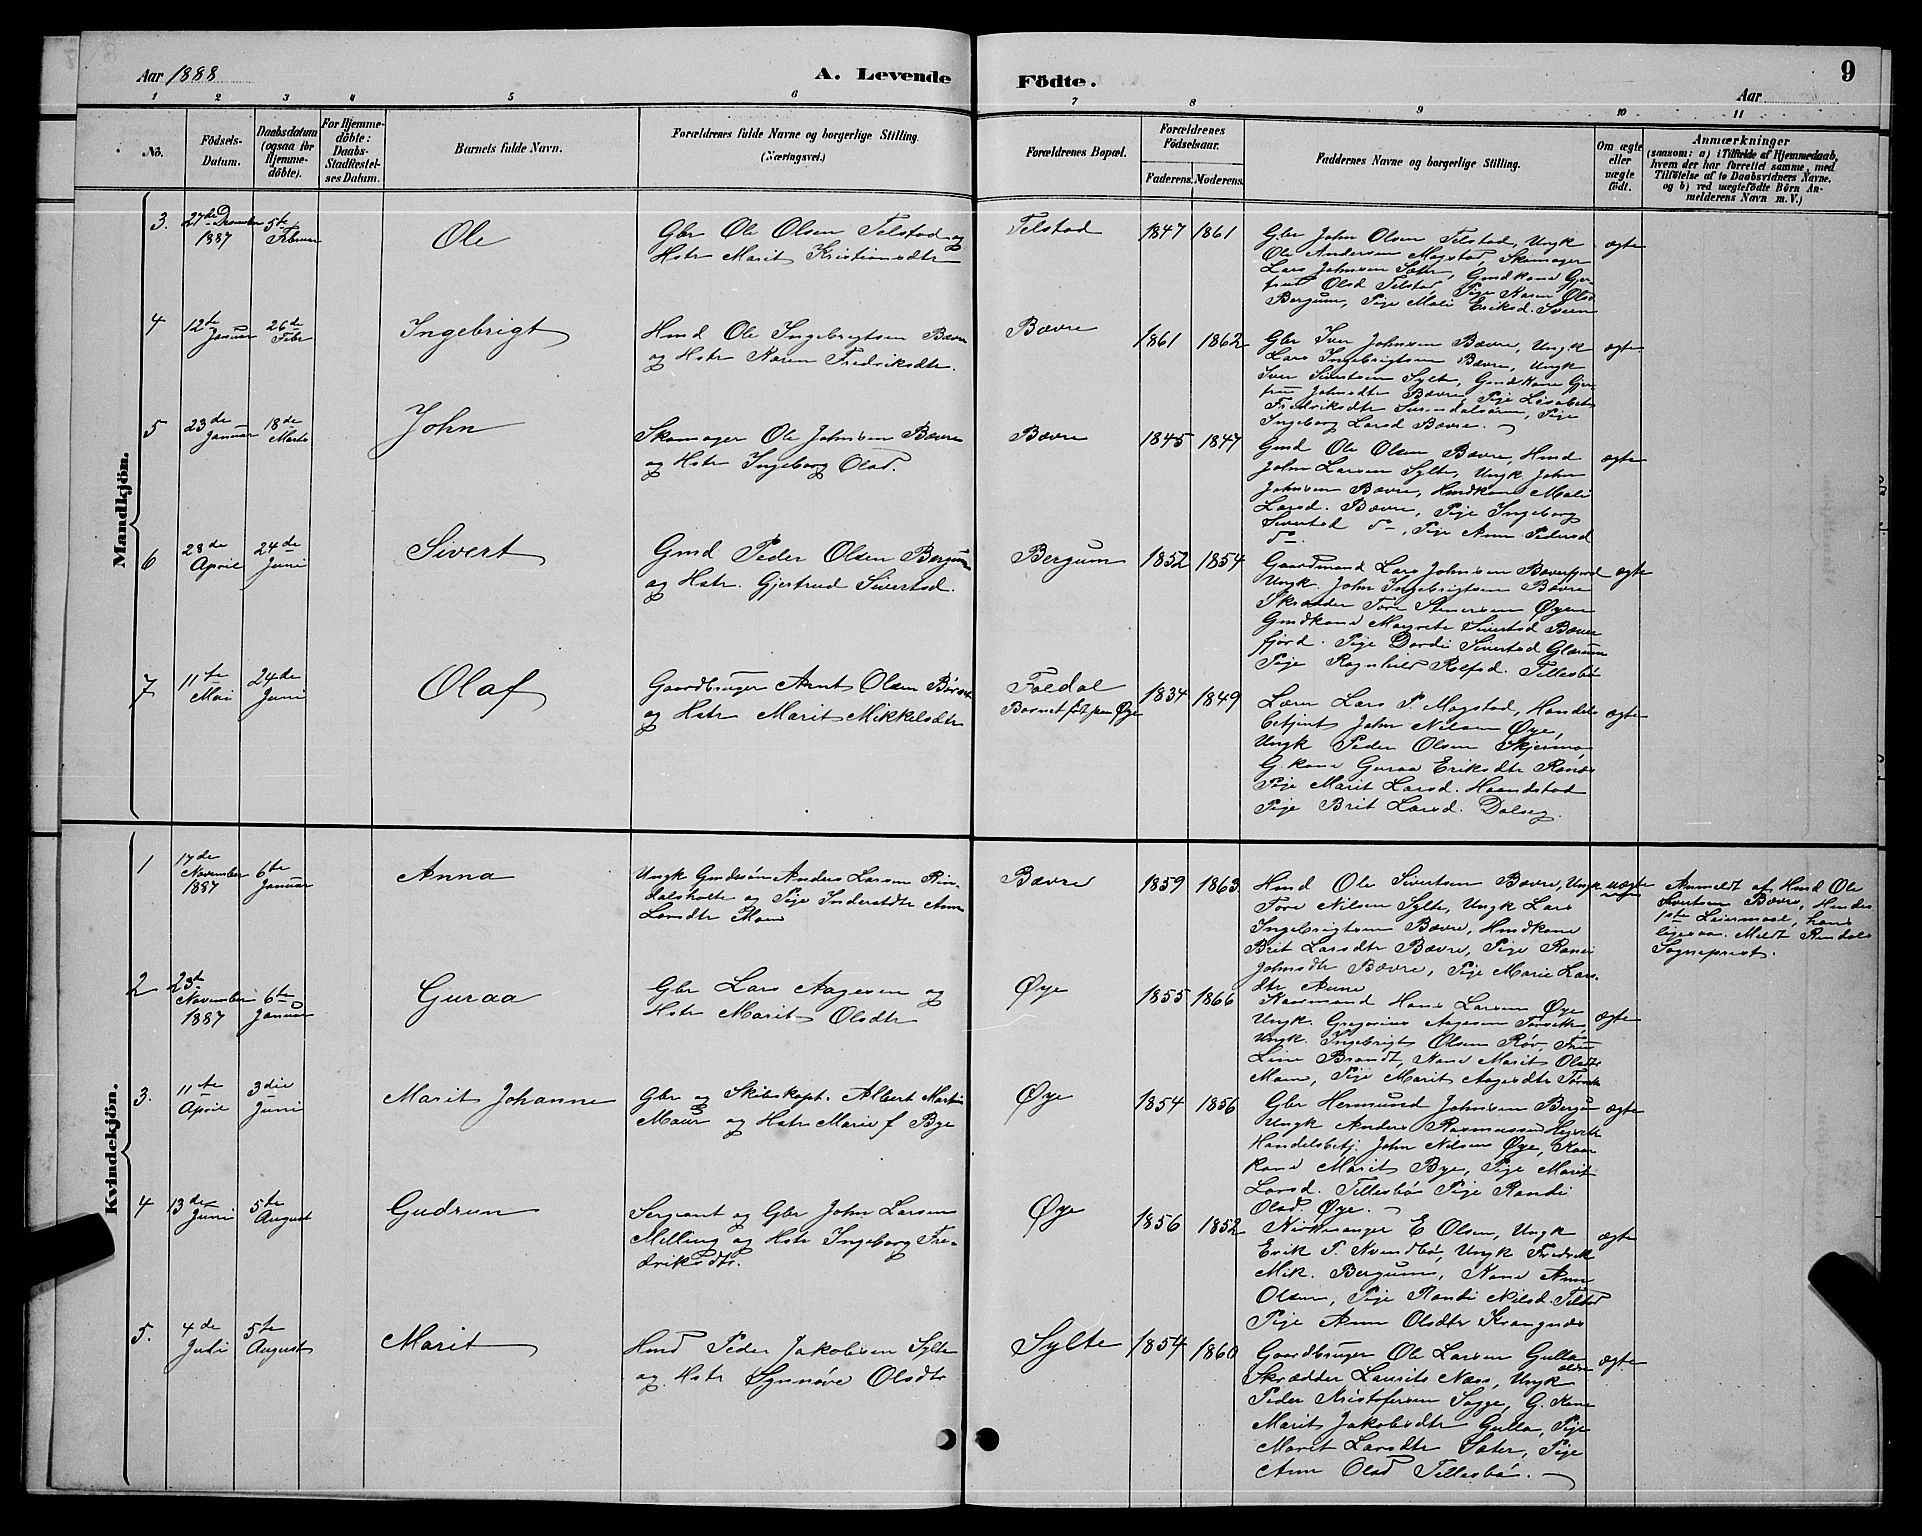 Aar 1888
A. Levende
Födte.
9
Aar
1 2 3 4 5 6 7 8 9 10 11
No.
Födsels-
Datum.
Daabsdatum
(ogsaa for
Hjemme-
döbte).
For Hjemme-
döbte:
Daabs-
Stadfæstel-
ses Datum.
Barnets fulde Navn.
Forældrenes fulde Navne og borgerlige Stilling.
(Næringsvei.)
Forældrenes Bopæl.
Forældrenes
Födselsaar.
Faderens. Moderens.
Faddernes Navne og borgerlige Stilling.
Om ægte
eller
uægte
födt.
Anmærkninger
(saasom: a) i Tilfælde af Hjemmedaab,
hvem der har forrettet samme, med
Tilföielse af to Daabsvidners Navne,
og b) ved uægtefödte Börn An-
melderens Navn m. V.)
Mandkjön.
3. 27de December 1887
5te Februar
Ole
Gbr Ole Olsen Telstad og
Hstr Marit Kristiansdtr
Telstad
1847 1861
Gbr John Olsen Telstad, Ungk
Ole Andersen Mogstad, Skomager
Lars Johnsen Sæter, Gmdkone Gjer-
trud Olsd Telstad, Pige Karen Olsd
Bergum, Pige Mali Eriksd. Sveen
ægte
4 12te Januar
26de Febr
Ingebrigt
Hmd Ole Ingebrigtsen Bævre
og Hstr Karen Fredriksdtr.
Bævre
1861 1862
Gbr Iver Johnsen Bævre, Ungk
Lars Ingebrigtsen Bævre, Ungk
Iver Sivertsen Sylte, Gmdkone Gjer-
tru Johnsdtr Bævre, Pige Lisabet
Fredriksdtr Surendalsøren, Pige
Ingeborg Larsd Bævre.
ægte
5 23de Januar
18de Marts
John
Skomager Ole Johnsen Bævre
og Hstr Ingeborg Olsd.
Bævre
1845 1847
Gmd Ole Olsen Bævre, Hmd
John Larsen Sylte, Ungk John
Johnsen Bævre, Hmdkone Mali
Larsd. Bævre, Pige Ingeborg
Sivertsd do, Pige Ann Pedersd
do.
ægte
6 28de April
24de Juni
Sivert
Gmd Peder Olsen Bergum
og Hstr. Gjertrud Sivertsd.
Bergum
1852 1854
Gaardmand Lars Johnsen Bæverfjord
Ungk. John Ingebrigtsen Bævre
Skrædder Tore Steinersen Øyen
Gmdkone Margrete Sivertsd Bæver
fjord. Pige Dordi Sivertsd Glærum
Pige Ragnhild Rolfsd. Tellesbø
ægte
7 11te Mai
24de Juni
Olaf
Gaardbruger Arnt Olsen
og Hstr Marit Mikkelsdtr
Foldal
Barnet født paa Øye
1834 1849
Lærer Lars P Mogstad, Handels
betjent John Nilsen Øye,
Ungk Peder Olsen Skjermo,
G. kone Guraa Eriksdtr
Pige Marit Larsd. Haandstad
Pige Brit Larsd. Dalseg.
ægte
Kvindekjön.
1 17de November 1887
6te Januar
Anna
Ungk Gmdesøn Anders Larsen Rin-
dalsholte og Pige Inderstdtr Ann
Larsdtr Moen
Bævre
1859 1863
Hmd Ole Sivertsen Bævre, Ungk
Tore Nilsen Sylte, Ungk Lars
Ingebrigtsen Bævre, Hmdkone
Brit Larsdtr Bævre, Pige Randi
Johnsdtr Bævre, Pige Marie Lars-
dtr Aune
uægte
Anmeldt af Hmd Ole
Sivertsen Bævre, Hendes
1ste Leiermaal, hans
ligesaa. Meldt Rindals
Sogneprest.
2 23de November 1887
6te Januar
Guraa
Gbr Lars Aagesen og
Hstr Marit Olsdtr
Øye
1855 1866
Kaarmand Hans Larsen Øye
Ungk. Gregorius Aagesen Torvik
Ungk. Ingebrigt Olsen Røv, Fru
Line Brandt, Kone Marit Olsdtr
Moen, Pige Marit Aagesdtr
ægte
3. 11te April
3die Juni
Marit Johanne
Gbr og Skibskapt. Albert Martin
Maur og Hstr Marie f Bye
Øye
1854 1856
Gbr Hermund Johnsen Bergum
Ungk Anders Rasmussen
Handelsbetj. John Nilsen Øye, Kaar
kone Marit Bye, Pige Marit
Larsd. Tellesbø Pige Randi
Olsd. Øye.
ægte
4 13de Juni
5te August
Gudrun
Sergeant og Gbr John Larsen
Melling og Hstr Ingeborg Fre-
driksdtr.
Øye
1856 1852
Kirkesanger E Olsen, Ungk
Erik P. Kvendbø, Ungk Fredrik
Mik. Bergum, Kone Ann
Olsen, Pige Randi Nilsd. Telstad
Pige Ann Olsdtr Krangnæs
ægte
5. 4de Juli
5te August
Marit
Hmd Peder Jakobsen Sylte
og Hstr Synnøve Olsdtr
Sylte
1854 1860
Gaardbruger Ole Larsen Gulla
Skrædder Laurits Næss, Ungk
Peder Kristofersen Sogge, G. Kone
Marit Jakobsdtr Gulla, Pige
Marit Larsdtr Sæter, Pige
Ann Olsd Tellesbø.
ægte